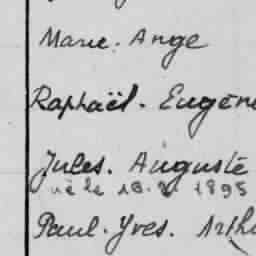 Marie. Ange
Raphaël. Eugène
Jules. Auguste
né le 18. 1895
Paul. Yves. Arthu